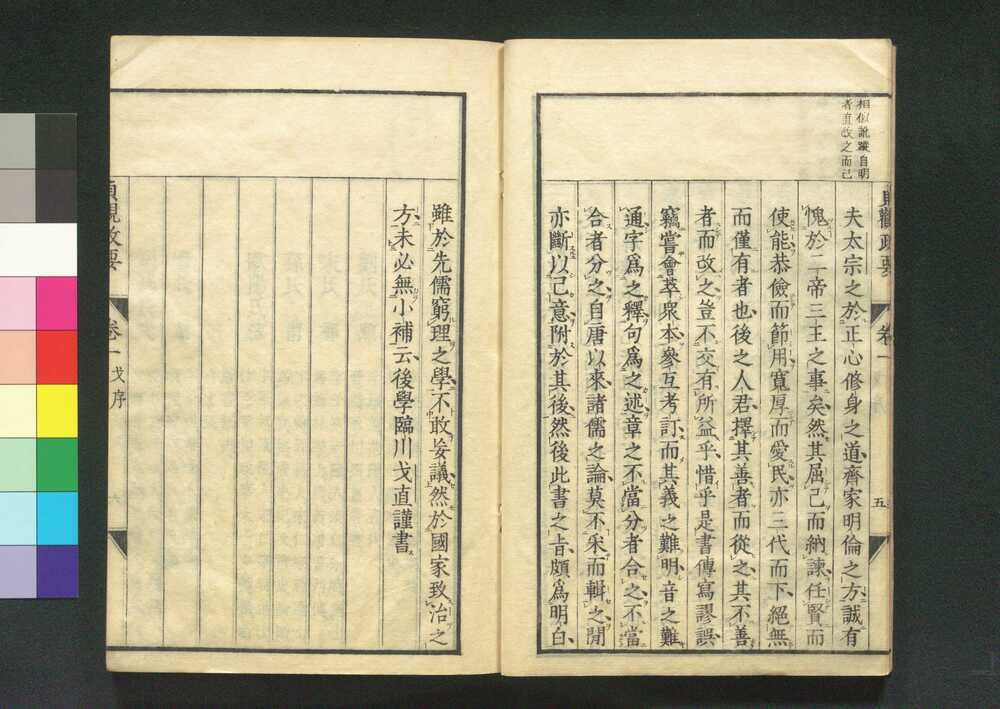 相似訛蹤自明
者直改之而已
貞觀政要 卷一 五
夫太宗之於正心修身之道齊家明倫之方誠有
愧於二帝三王之事矣然其屈己而納諫任賢而
使能恭儉而節用寬厚而愛民亦三代而下絕無
而僅有者也後之人君擇其善者而從之其不善
者而改之豈不交有所益乎惜乎是書傳寫謬誤
竊嘗會萃衆本參互考訂而其義之難明音之難
通字爲之釋句爲之述章之不當分者合之不當
合者分之自唐以來諸儒之論莫不采而輯之閒
亦斷以己意附於其後然後此書之旨頗爲明白
雖於先儒窮理之學不敢妄議然於國家致治之
方未必無小補云後學臨川戈直謹書
貞觀政要 卷一 戈序